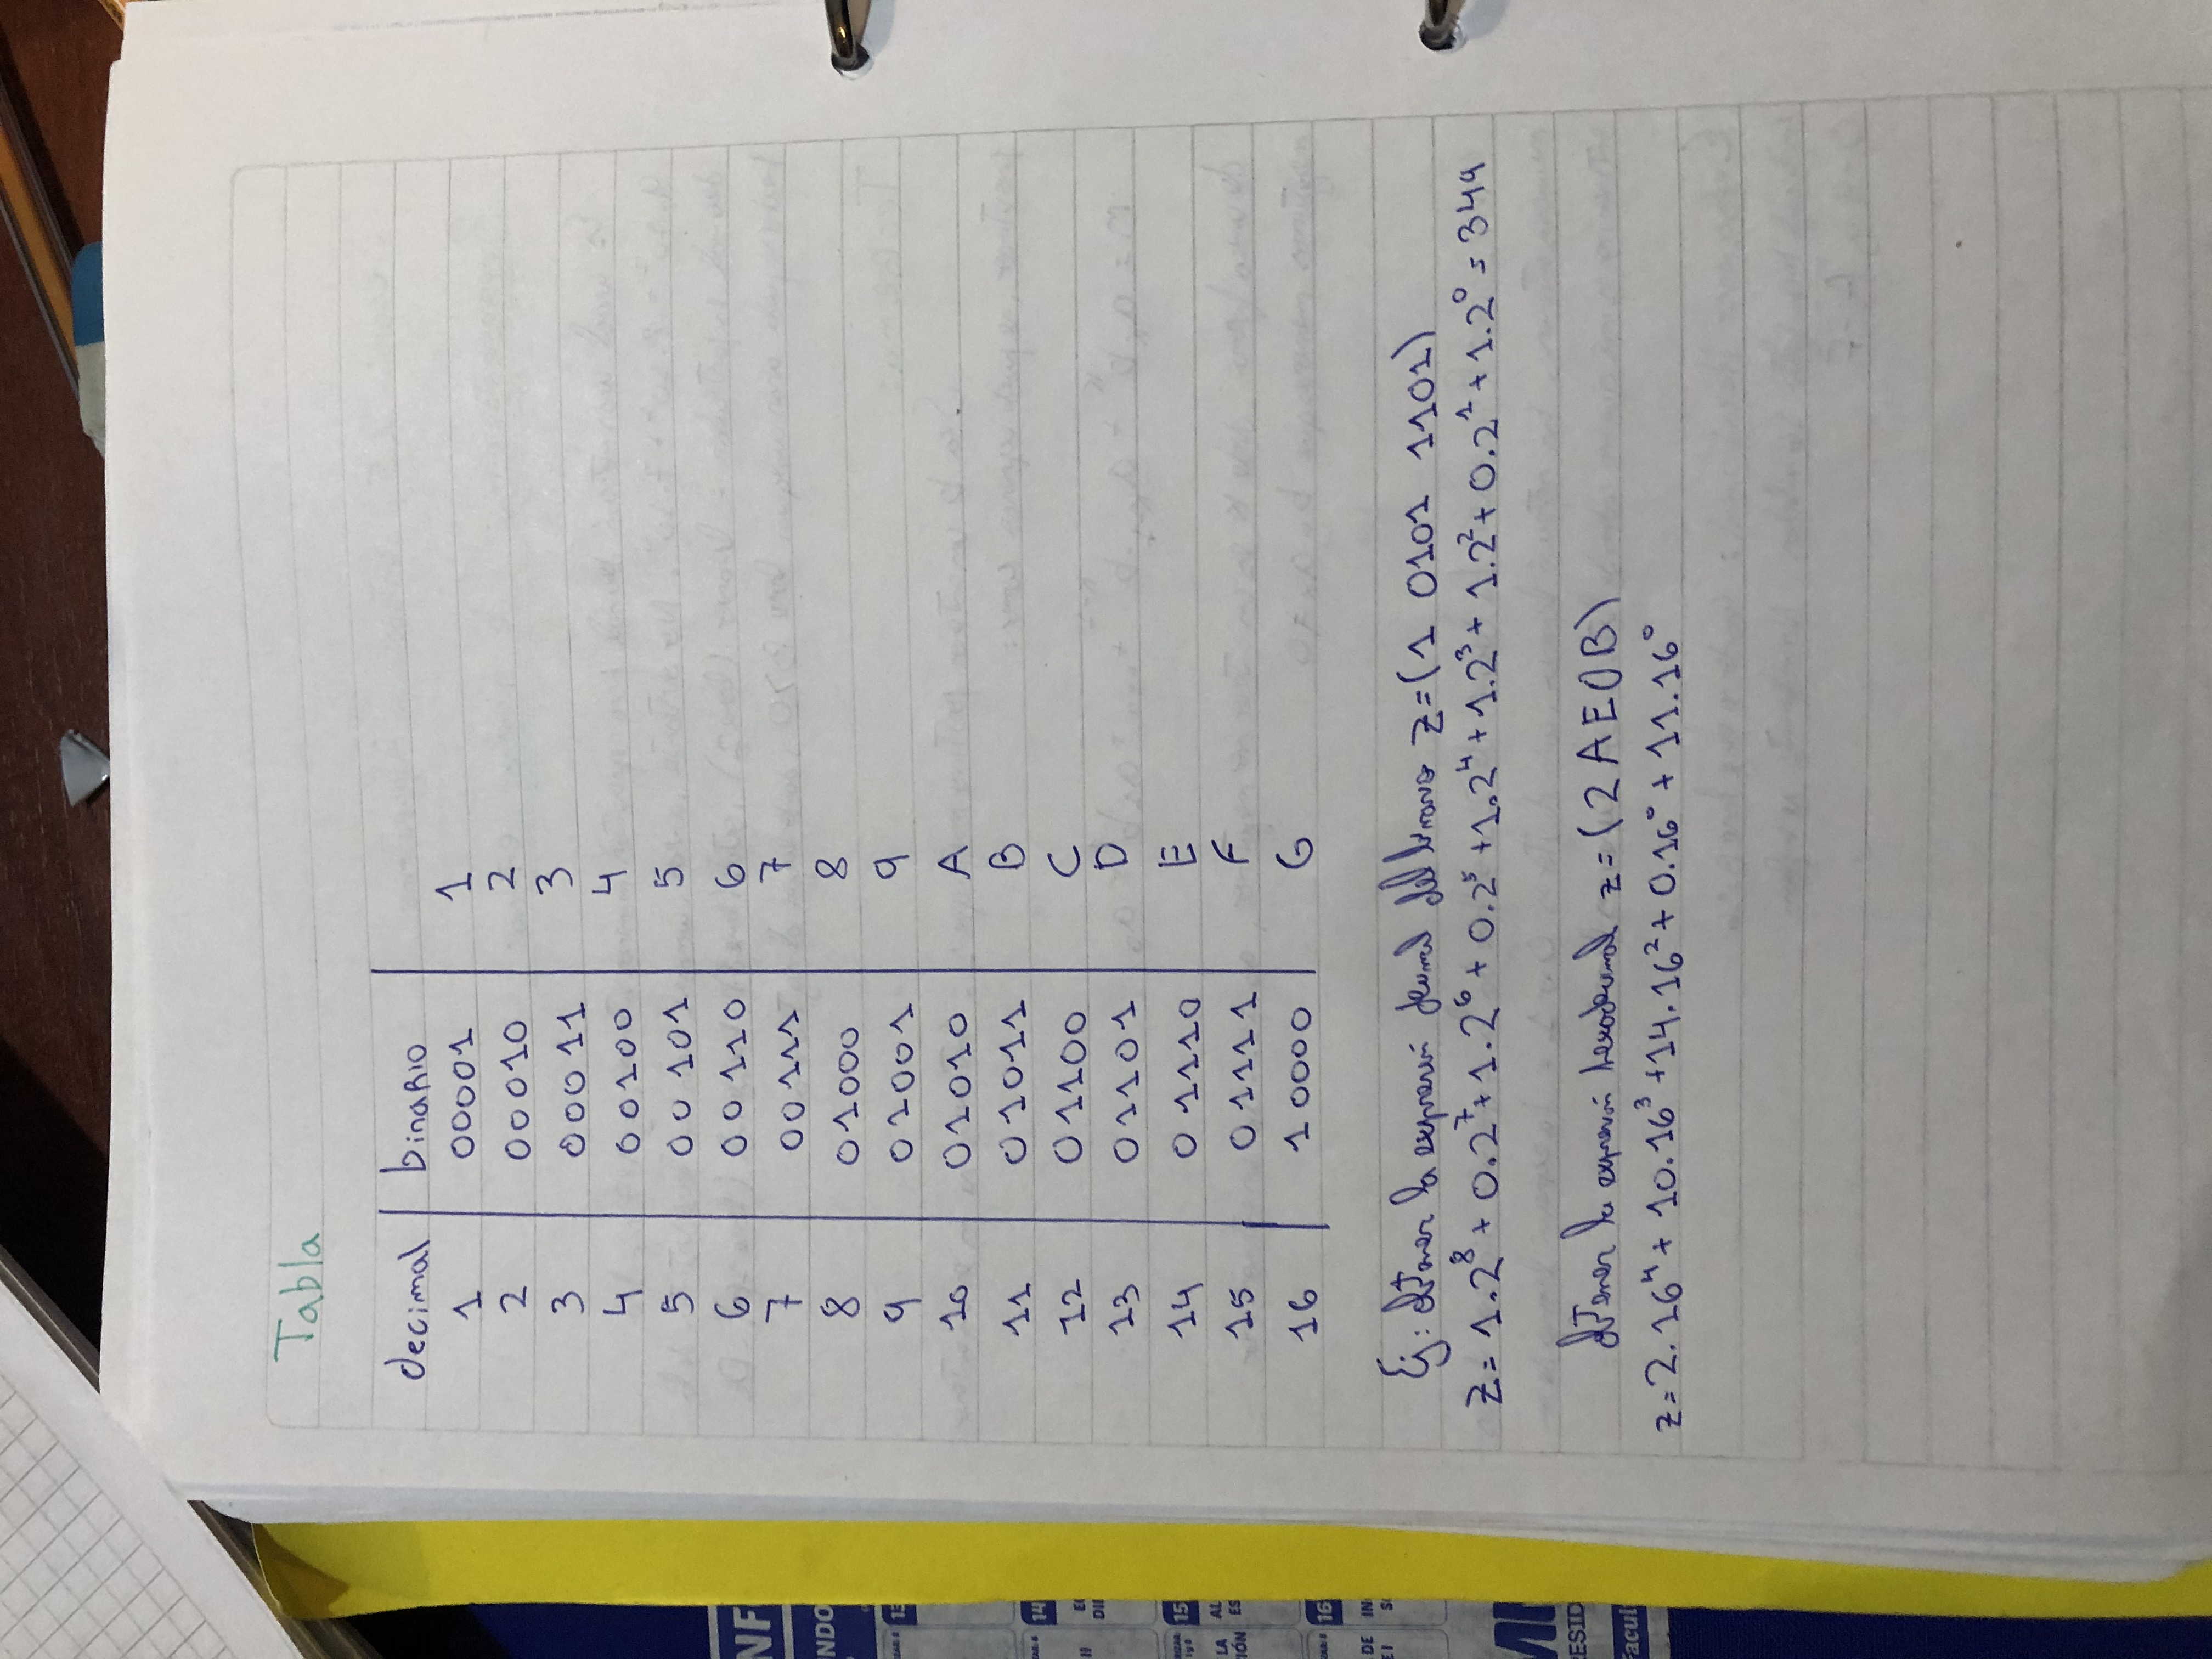 Tabla
decimal binario
1 00001 1
2 00010 2
3 00011 3
4 00100 4
5 00101 5
6 00110 6
7 00111 7
8 01000 8
9 01001 9
10 01010 A
11 01011 B
12 01100 C
13 01101 D
14 01110 E
15 01111 F
16 10000 G
Ej: obtener la expresión decimal del binario z=(1 0101 1101)
z= 1.2⁸ + 0.2⁷ + 1.2⁶ + 0.2⁵ + 1.2⁴ + 1.2³ + 1.2² + 0.2¹ + 1.2⁰ = 349
obtener la expresión hexadecimal z=(2AE0B)
z=2.16⁴ + 10.16³ + 14.16² + 0.16⁰ + 11.16⁰
INF
NDO
13
14
II
DI
15
LA
AL
IÓN
ES
16
DE
IN
E I
S
RESID
Facul